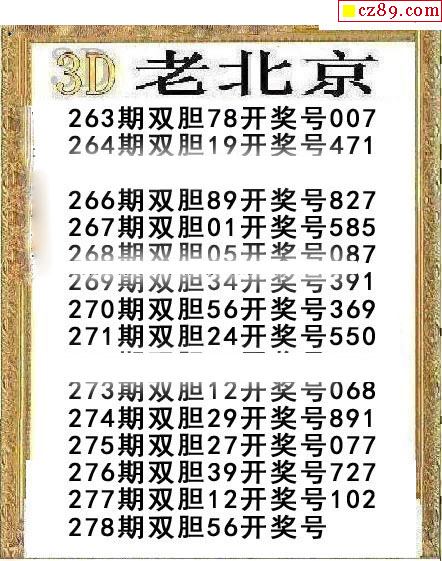 cz89.com
3D 老北京
263期双胆78开奖号007
264期双胆19开奖号471
266期双胆89开奖号827
267期双胆01开奖号585
268期双胆05开奖号087
269期双胆34开奖号391
270期双胆56开奖号369
271期双胆24开奖号550
273期双胆12开奖号068
274期双胆29开奖号891
275期双胆27开奖号077
276期双胆39开奖号727
277期双胆12开奖号102
278期双胆56开奖号